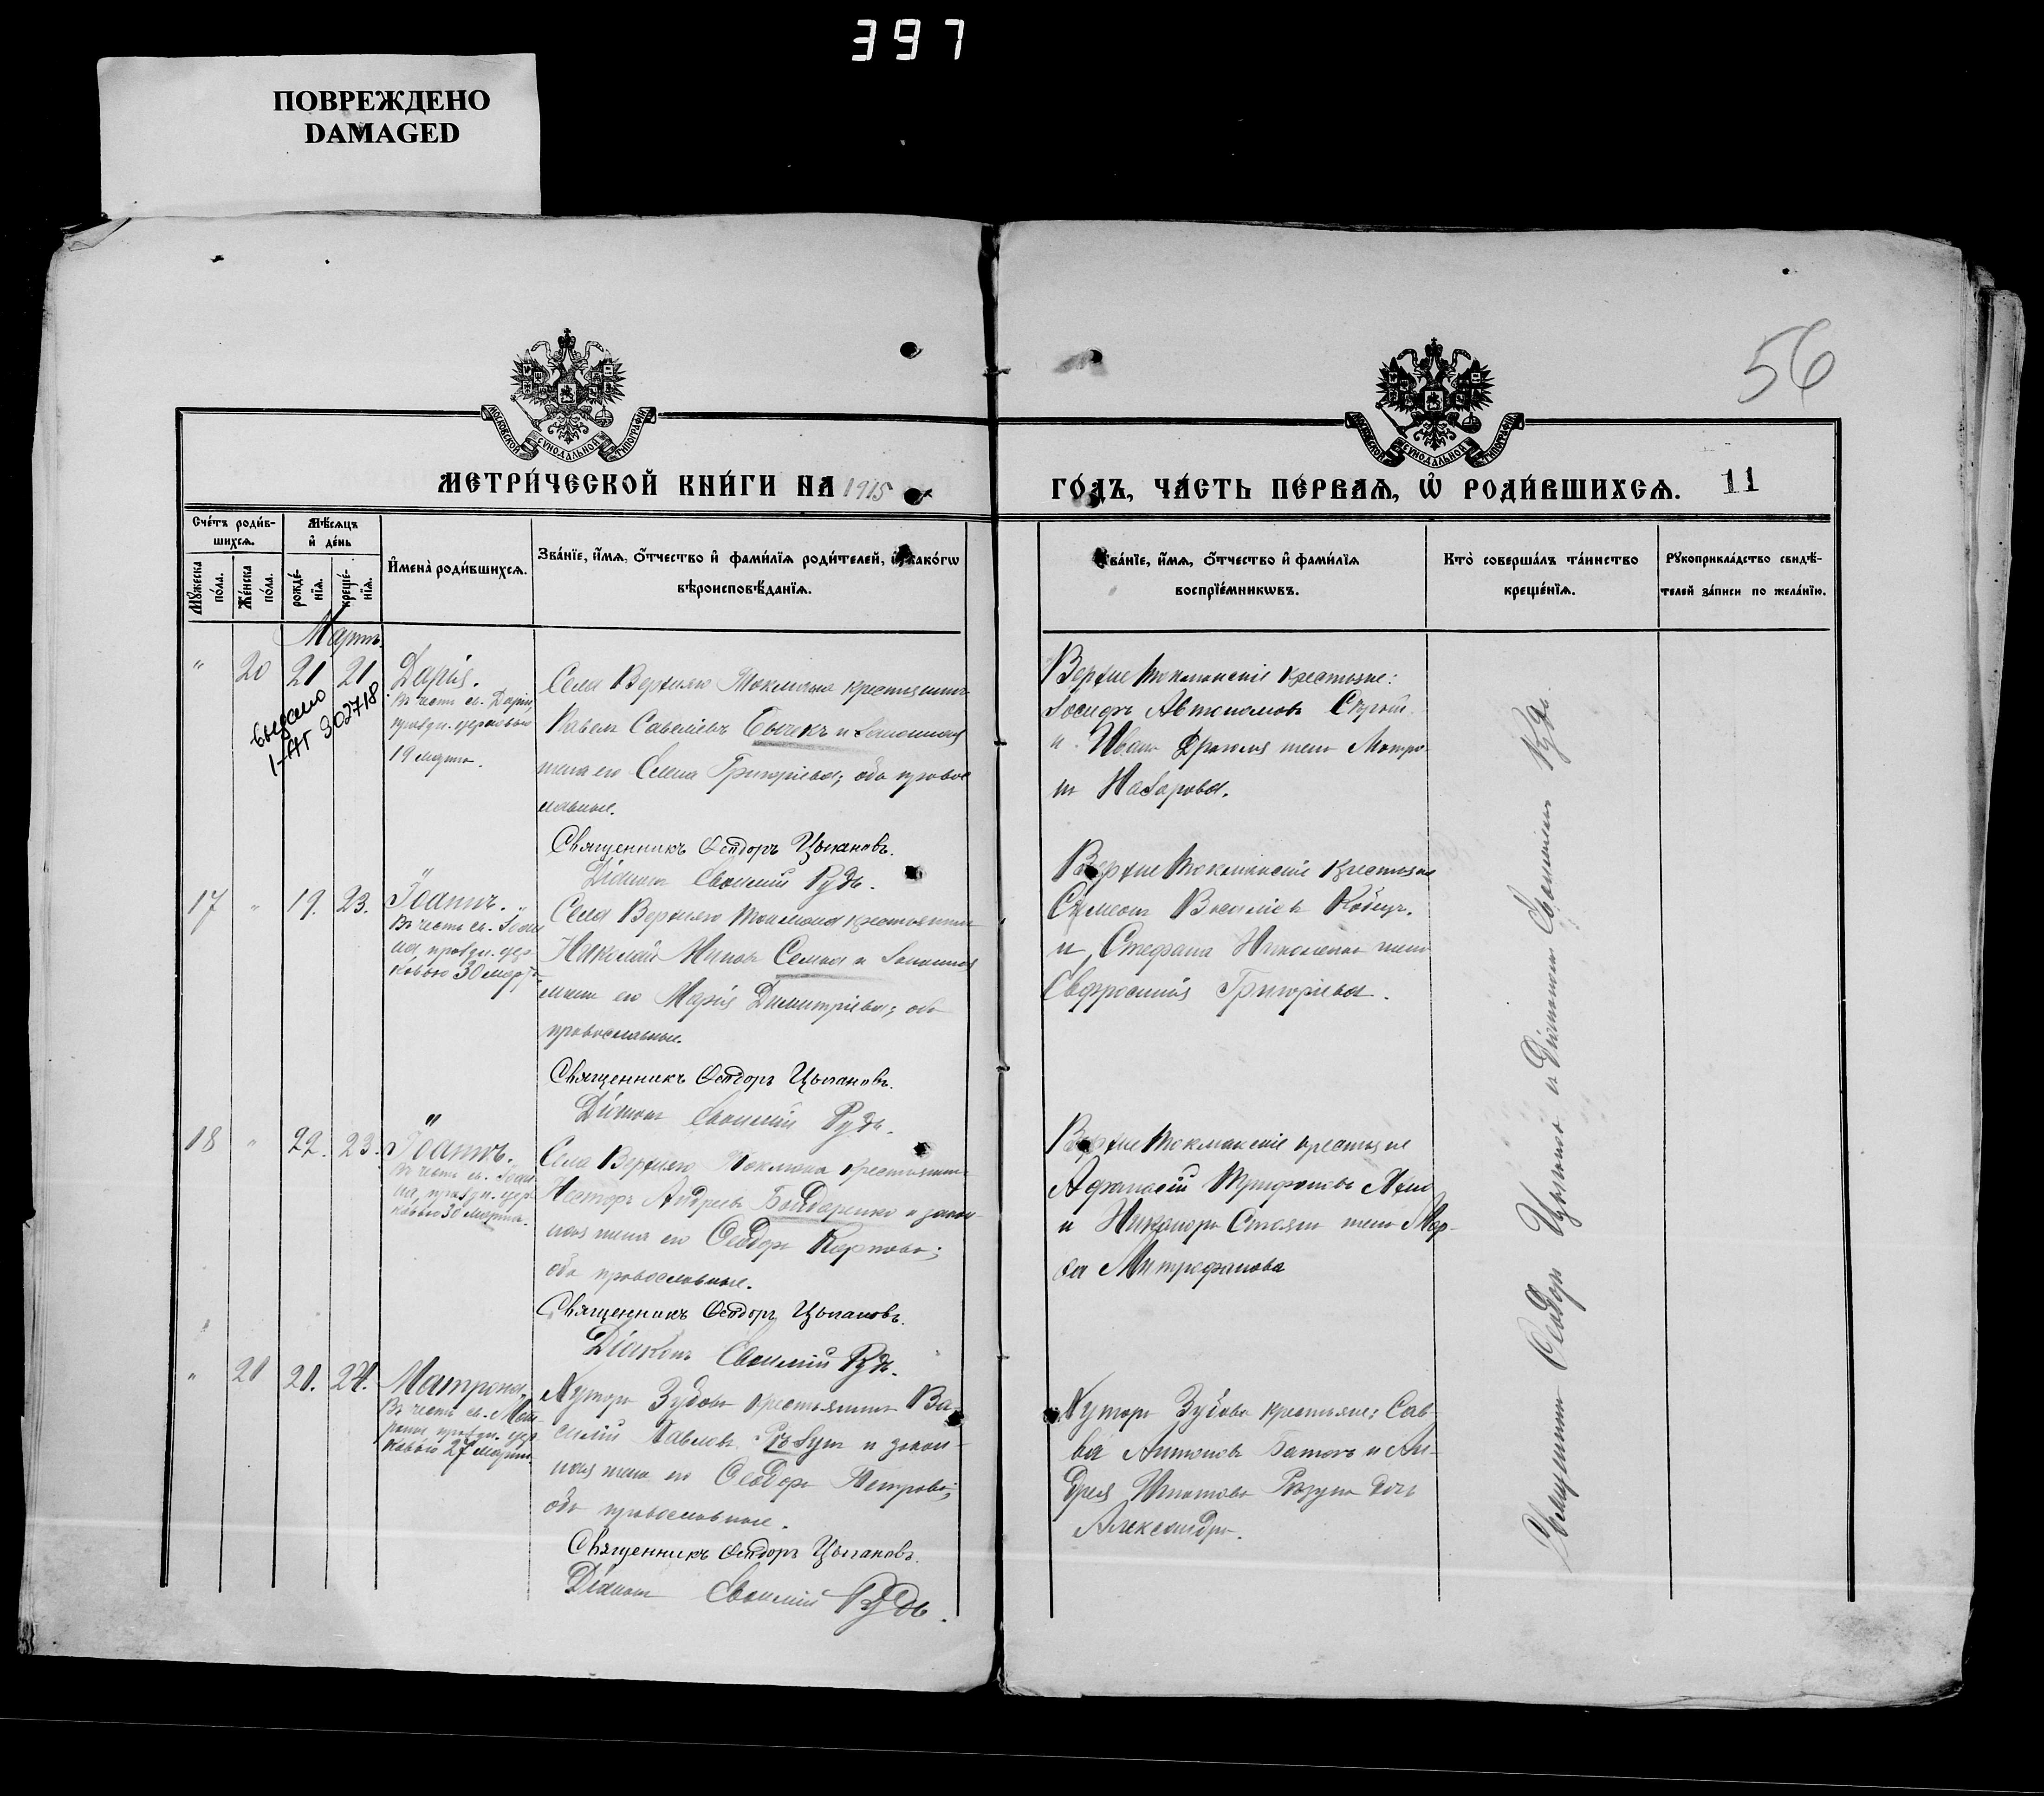 397
ПОВРЕЖДЕНО
DAMAGED
56
МОСКОВСКОЙ СѴНОДАЛЬНОЙ ТИПОГРАФІИ
МОСКОВСКОЙ СѴНОДАЛЬНОЙ ТИПОГРАФІИ
МЕТРИ́ЧЕСКОЙ КНИ́ГИ НА 1915
ГО́ДЪ, ЧА́СТЬ ПЕ́РВАѦ, Ѡ҆ РОДИ́ВШИХСѦ. 11
Сче́тъ роди́в-
шихсѧ.
Мѣ́сѧцъ
и҆ де́нь
Мꙋ́жеска
по́ла.
Же́нска
по́ла.
рожде́-
нїѧ.
креще́-
нїѧ.
И҆мена̀ роди́вшихсѧ.
Зва́нїе, и҆́мѧ, ѻ҆́тчество и҆ фами́лїѧ роди́телей, и҆ како́гѡ
вѣроисповѣ́данїѧ.
Зва́нїе, и҆́мѧ, ѻ҆́тчество и҆ фами́лїѧ
воспрїе́мникѡвъ.
Кто̀ соверша́лъ та́инство
креще́нїѧ.
Рꙋкоприкла́дство свидѣ́-
телей за́писи по жела́нїю.
Мартъ.
" 20 21 21 Дарія.
Въ честь св. Даріи
праздн. церковью
19 марта.
выдано
I-АГ 302718
Села Верхняго Токмака крестьянинъ
Павелъ Савеліевъ Бычекъ и законная
жена его Елена Григоріева; оба правос
лавные.
Священникъ Ѳеодоръ Цыгановъ.
Діаконъ Евѳимій Рудь.
Верхне Токмакскіе крестьяне:
Іосифъ Автономовъ Сѣрый
и Ивана жена Матро-
на Назарова.
17 " 19. 23. Іоаннъ.
Въ честь св. Іоан
на, праздн. цер
ковью 30 марта.
Села Верхняго Токмака крестьянинъ
Николай Семка и законная
жена его Марія Димитріева; оба
православные.
Священникъ Ѳеодоръ Цыгановъ.
Діаконъ Евѳимій Рудь.
Верхне Токмакскіе крестьяне
Симеонъ Василіевъ
и Стефана Николенко жена
Евфросинія Григоріева.
18 " 22. 23. Іоаннъ.
Въ честь св. Іоан
на, праздн. цер
ковью 30 марта.
Села Верхняго Токмака крестьянинъ
Несторъ Андреевъ Бондаренко и закон-
ная жена его Ѳеодора Карпова;
оба православные.
Священникъ Ѳеодоръ Цыгановъ.
Діаконъ Евѳимій Рудь.
Верхне Токмакскіе крестьяне
Афанасій Трифоновъ
и Никанора жена Мар-
Митрофанова
" 21 21. 24. Матрона.
Въ честь св. Мат-
роны, праздн. цер
ковью 27 марта
Хутора Зубова крестьянинъ Ва-
силій Павловъ и закон-
ная жена его Ѳеодора Петрова;
оба православные.
Священникъ Ѳеодоръ Цыгановъ.
Діаконъ Евѳимій Рудь.
Хутора Зубова крестьяне: Сав-
ва Антоновъ и Ан-
дрея дочь
Александра.
Священникъ Ѳеодоръ Цыгановъ и Діаконъ Евѳимій Рудь.